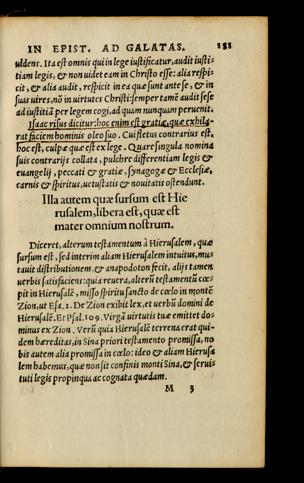 IN EPIST. AD GALATAS. 181
uidens. Ita est omnis qui in lege iustificatur, audit iusti-
tiam legis, & non uidet eam in Christo esse: alia respi-
cit, & alia audit, respicit in ea quæ sunt ante se, & in
suas uires, nō in uirtutes Christi: semper tamē audit sese
ad iustitiā per legem cogi, ad quam nunquam peruenit.
Isaac risus dicitur: hoc enim est gratiæ, quæ exhila-
rat faciem hominis oleo suo. Cui fletus contrarius est,
hoc est, culpæ quæ est ex lege. Quare singula nomina
suis contrarijs collata, pulchre differentiam legis &
euangelij, peccati & gratiæ, synagogæ & Ecclesiæ,
carnis & spiritus, uetustatis & nouitatis ostendunt.
Illa autem quæ sursum est Hie
rusalem, libera est, quæ est
mater omnium nostrum.
Diceret, alterum testamentum à Hierusalem, quæ
sursum est, sed interim aliam Hierusalem intuitus, mu-
tauit distributionem, & anapodoton fecit, alijs tamen
uerbis satisfaciens: quia reuera, alterū testamentū cœ-
pit in Hierusalē, misso spiritu sancto de cœlo in montē
Zion, ut Esa. 2. De Zion exibit lex, et uerbū domini de
Hierusalē. Et Psal. 109. Virgā uirtutis tuæ emittet do-
minus ex Zion. Verū quia Hierusalē terrena erat qui-
dem hæreditas, in Sina priori testamento promissa, no
bis autem alia promissa in cœlo: ideo & aliam Hierusa
lem habemus, quæ non sit confinis monti Sina, & serui-
tuti legis propinqua ac cognata quædam.
M 3